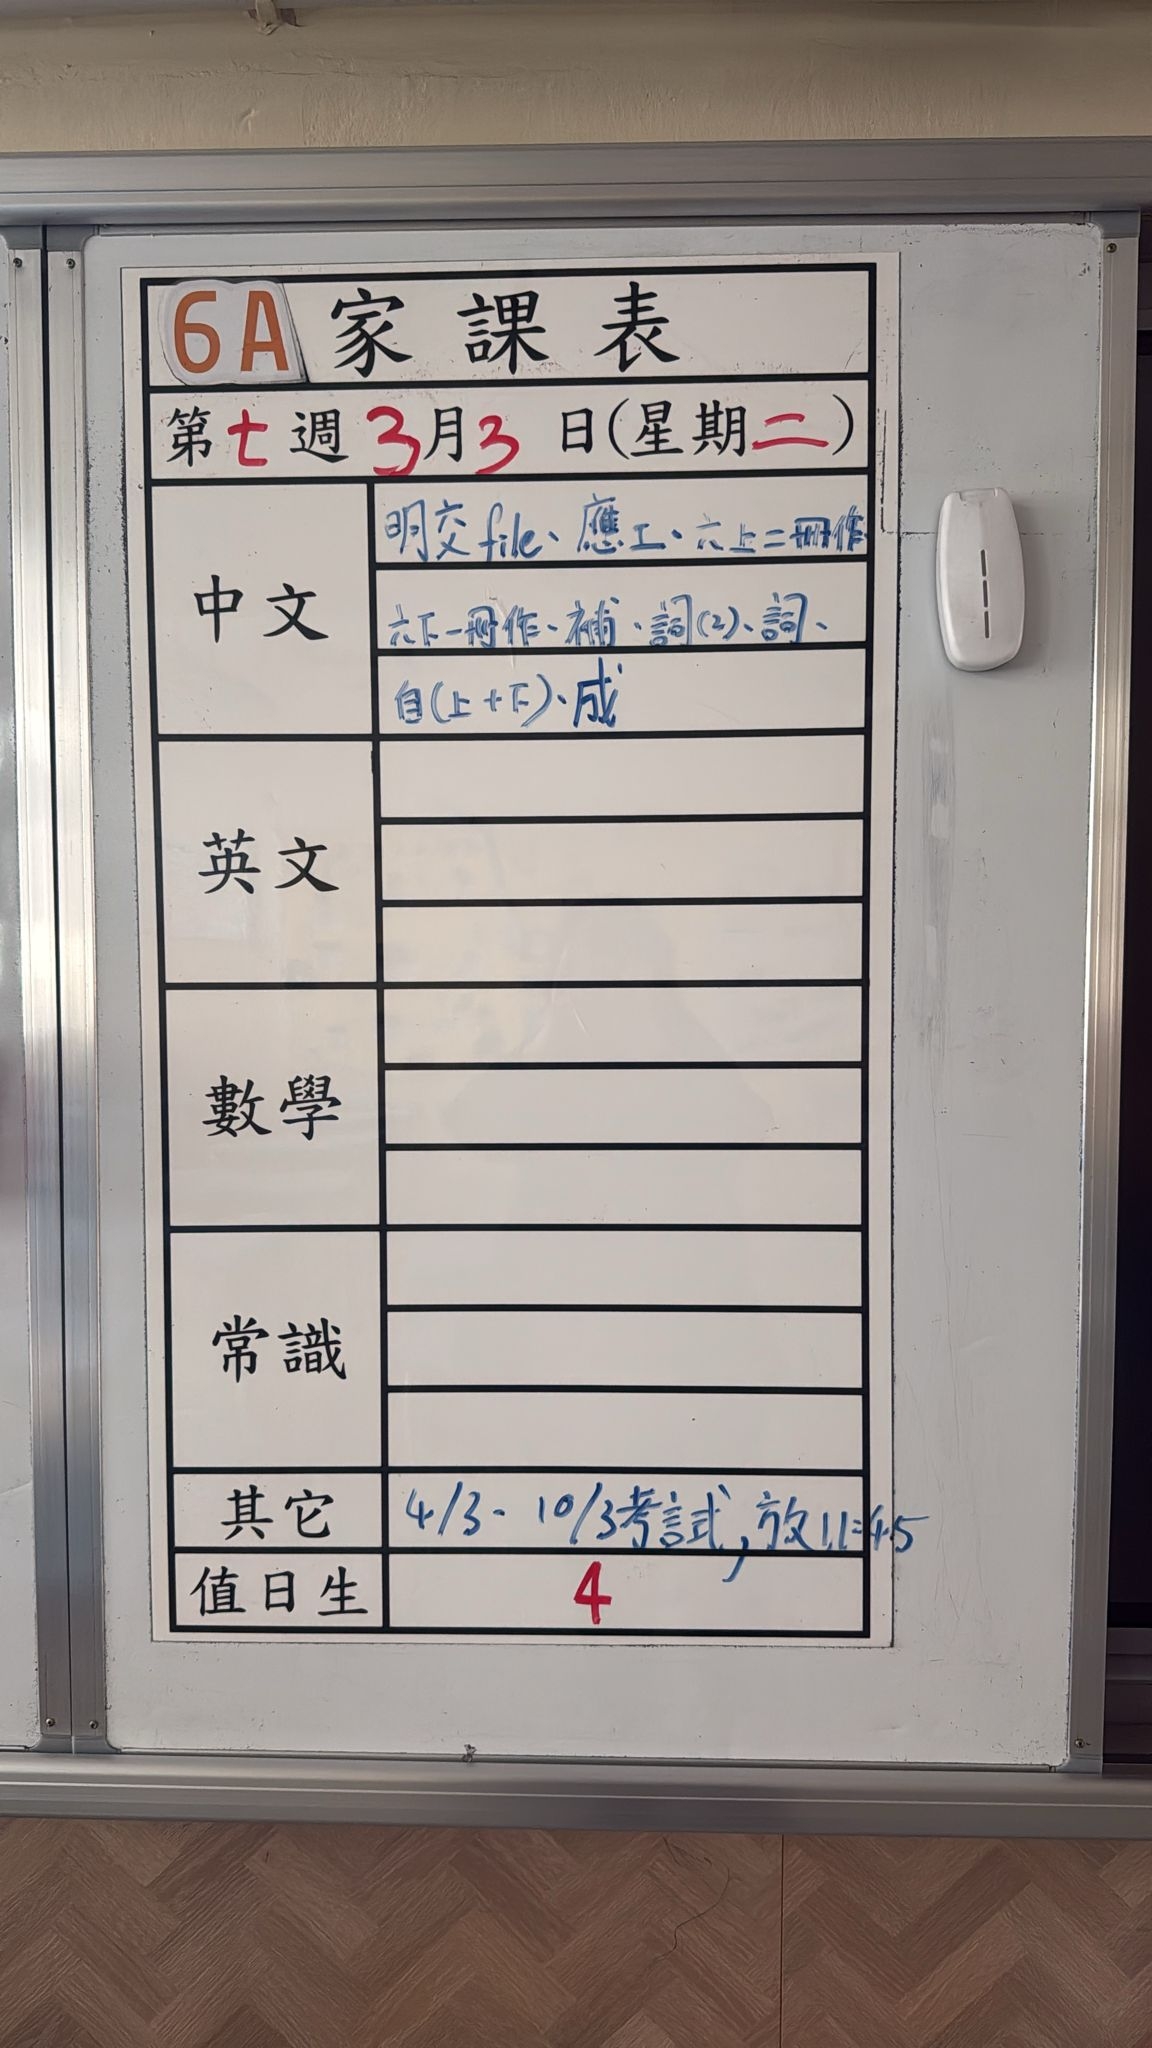 6A 家課表
第七週 3月3日(星期二)
中文
明交file、應工、六上二冊作
六下一冊作、補、詞(2)、詞、
自(上+下)、成
英文
數學
常識
其它 4/3-10/3考試,放11=45
值日生 4